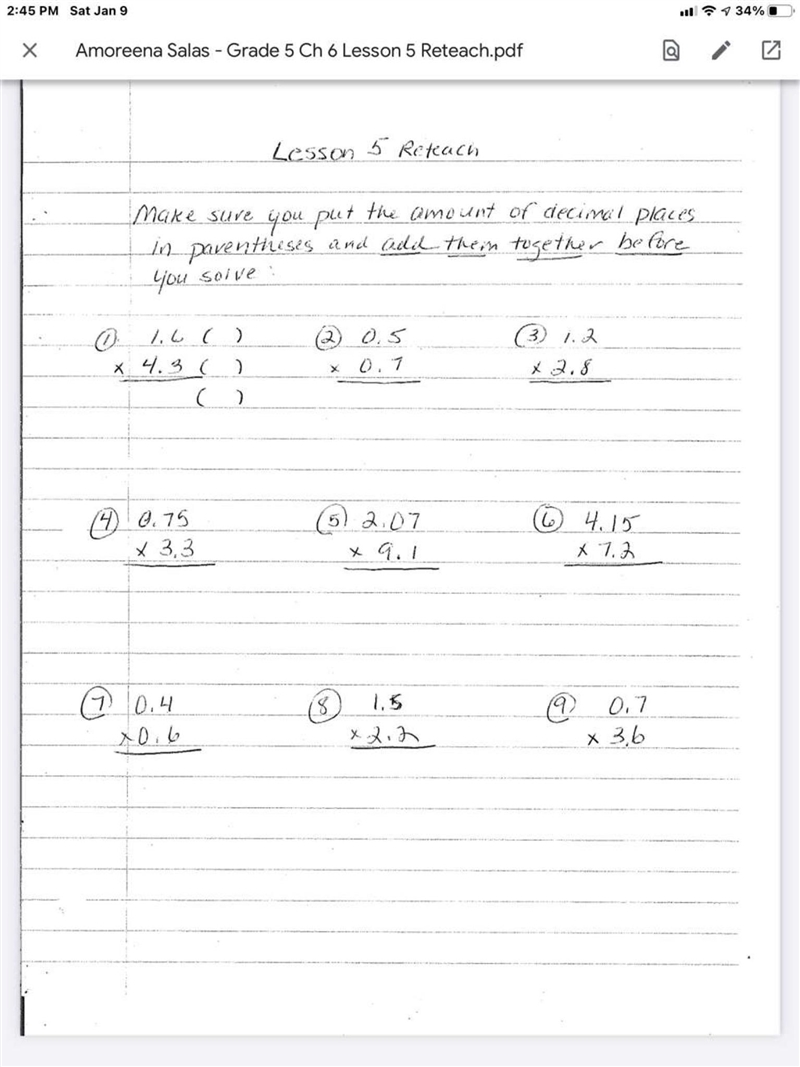 2:45 PM Sat Jan 9 34%
Amoreena Salas - Grade 5 Ch 6 Lesson 5 Reteach.pdf
Lesson 5 Reteach
Make sure you put the amount of decimal places
in parentheses and add them together before
you solve:
① 1.6 ( ) ② 0.5 ③ 1.2
x 4.3 ( ) x 0.7 x 2.8
( )
④ 0.75 ⑤ 2.07 ⑥ 4.15
x 3.3 x 9.1 x 7.2
⑦ 0.4 ⑧ 1.5 ⑨ 0.7
x 0.6 x 2.2 x 3.6